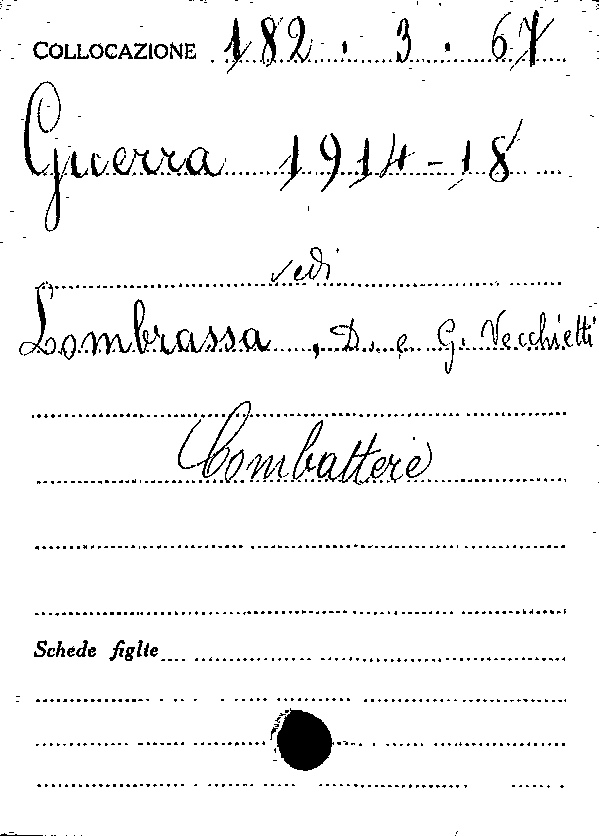 COLLOCAZIONE 182 . 3 . 67
Guerra 1914-18
vedi
Lombrassa, D. e G. Vecchietti
Combattere
Schede figlie